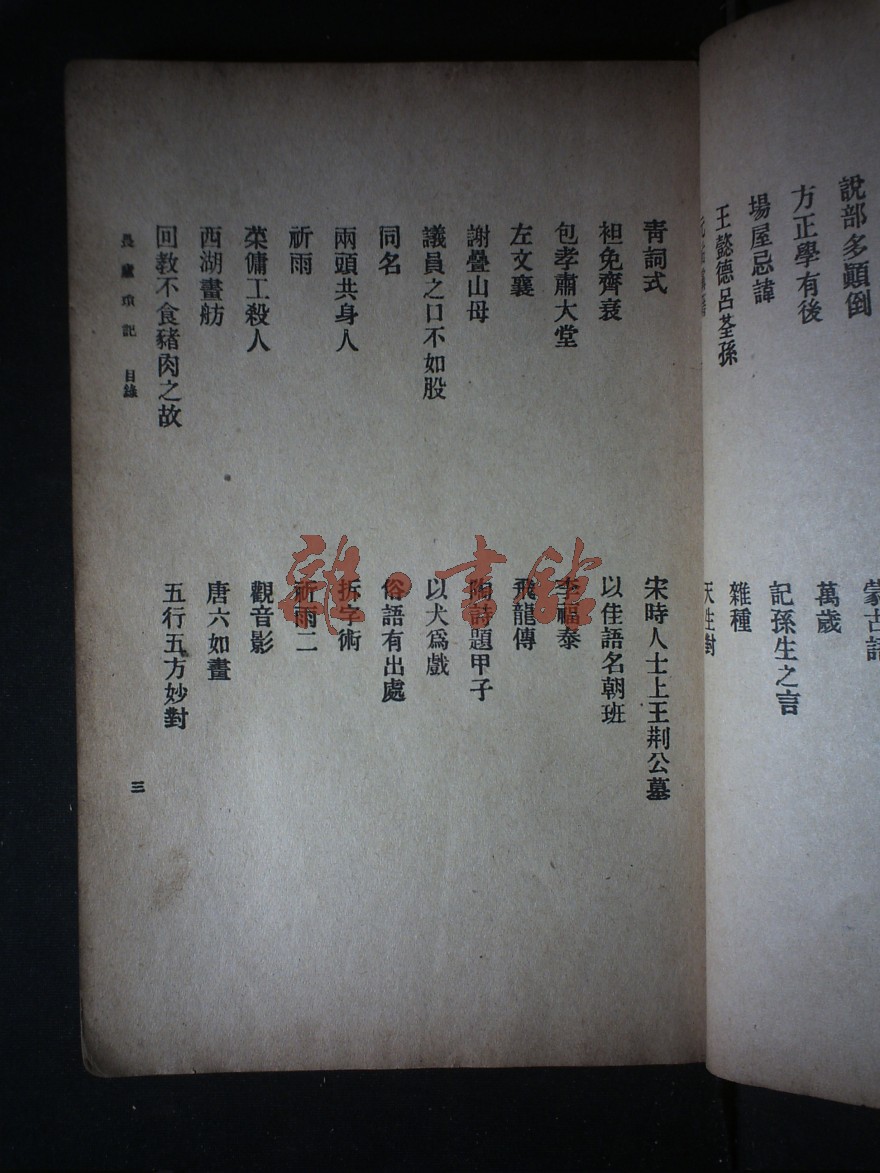 蒙古語
說部多顚倒
萬歲
方正學有後
記孫生之言
場屋忌諱
雜種
王懿德呂荃孫
天生對
青詞式
宋時人士上王荆公墓
袒免齊衰
以佳語名朝班
包孝肅大堂
李福泰
左文襄
飛龍傳
謝疊山母
陶詩題甲子
議員之口不如股
以犬爲戲
同名
俗語有出處
兩頭共身人
拆字術
祈雨
祈雨二
菜傭工殺人
觀音影
西湖畫舫
唐六如畫
回教不食豬肉之故
五行五方妙對
記 目錄
三
雜·書館